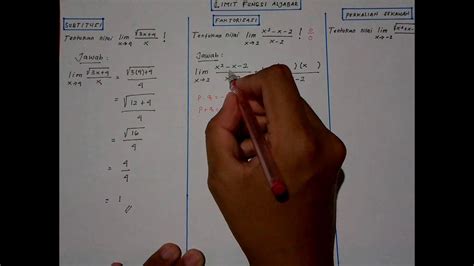 LIMIT FUNGSI ALJABAR
SUBTITUSI
Tentukan nilai lim x→4 √(3x+4)/x !
Jawab:
lim x→4 √(3x+4)/x = √(3(4)+4)/4
= √(12+4)/4
= √16/4
= 4/4
= 1 //
FAKTORISASI
Tentukan nilai lim x→2 (x²-x-2)/(x-2) ! 0/0
Jawab:
lim x→2 x²-x-2
PERKALIAN SEKAWAN
Tentukan nilai lim